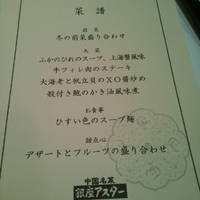 菜譜
前菜
冬の前菜盛り合わせ
大菜
ふかのひれのスープ、上海蟹風味
牛フィレ肉のステーキ
大海老と帆立貝のXO醤炒め
殻付き鮑のかき油風味煮
お食事
ひすい色のスープ麺
甜点心
デザートとフルーツの盛り合わせ
中国名菜
銀座アスター